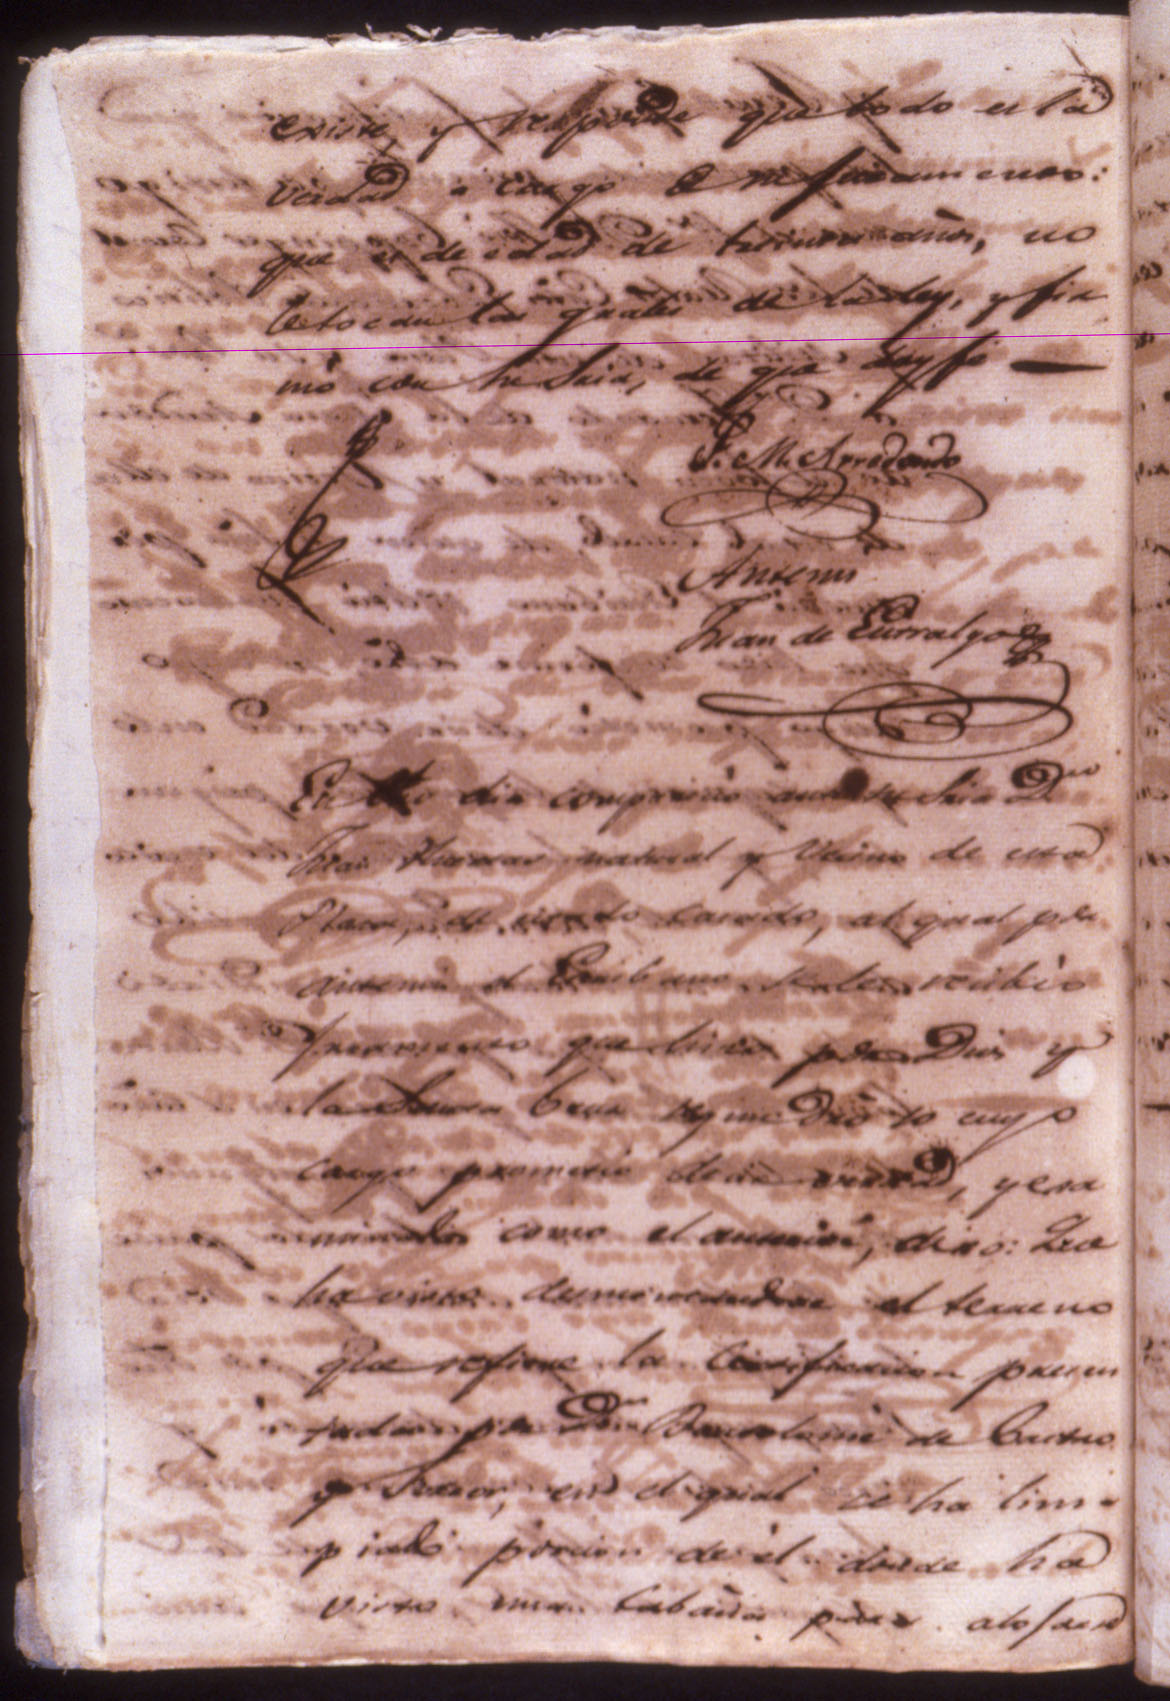 existe, y responde que todo es la
verdad a cargo de su juramento:
que es de edad de treinta años, no
le tocan las grales de la ley, y fir
mó con su Sria, de que doy fé —
J. M. Arredondo
Antemi
Juan de Iturralyo
En dho dia compareció ante su Sria Dn
Juan natural y Vecino de esta
Plaza, de estado casado, al qual por
antemi el Escribano se le recibió
Juramento que hizo por Dios y
la Santa Cruz segun dro so cuyo
cargo prometió decir verdad, y exa
minado como el anterior, dixo: Que
ha visto desmontandose el terreno
que refiere la Certificacion presen
tada por Dn Bartolomé de Castro
y Ferrer, en el qual se ha lim-
piado porcion de él donde ha
visto una Cabaña para alojarse